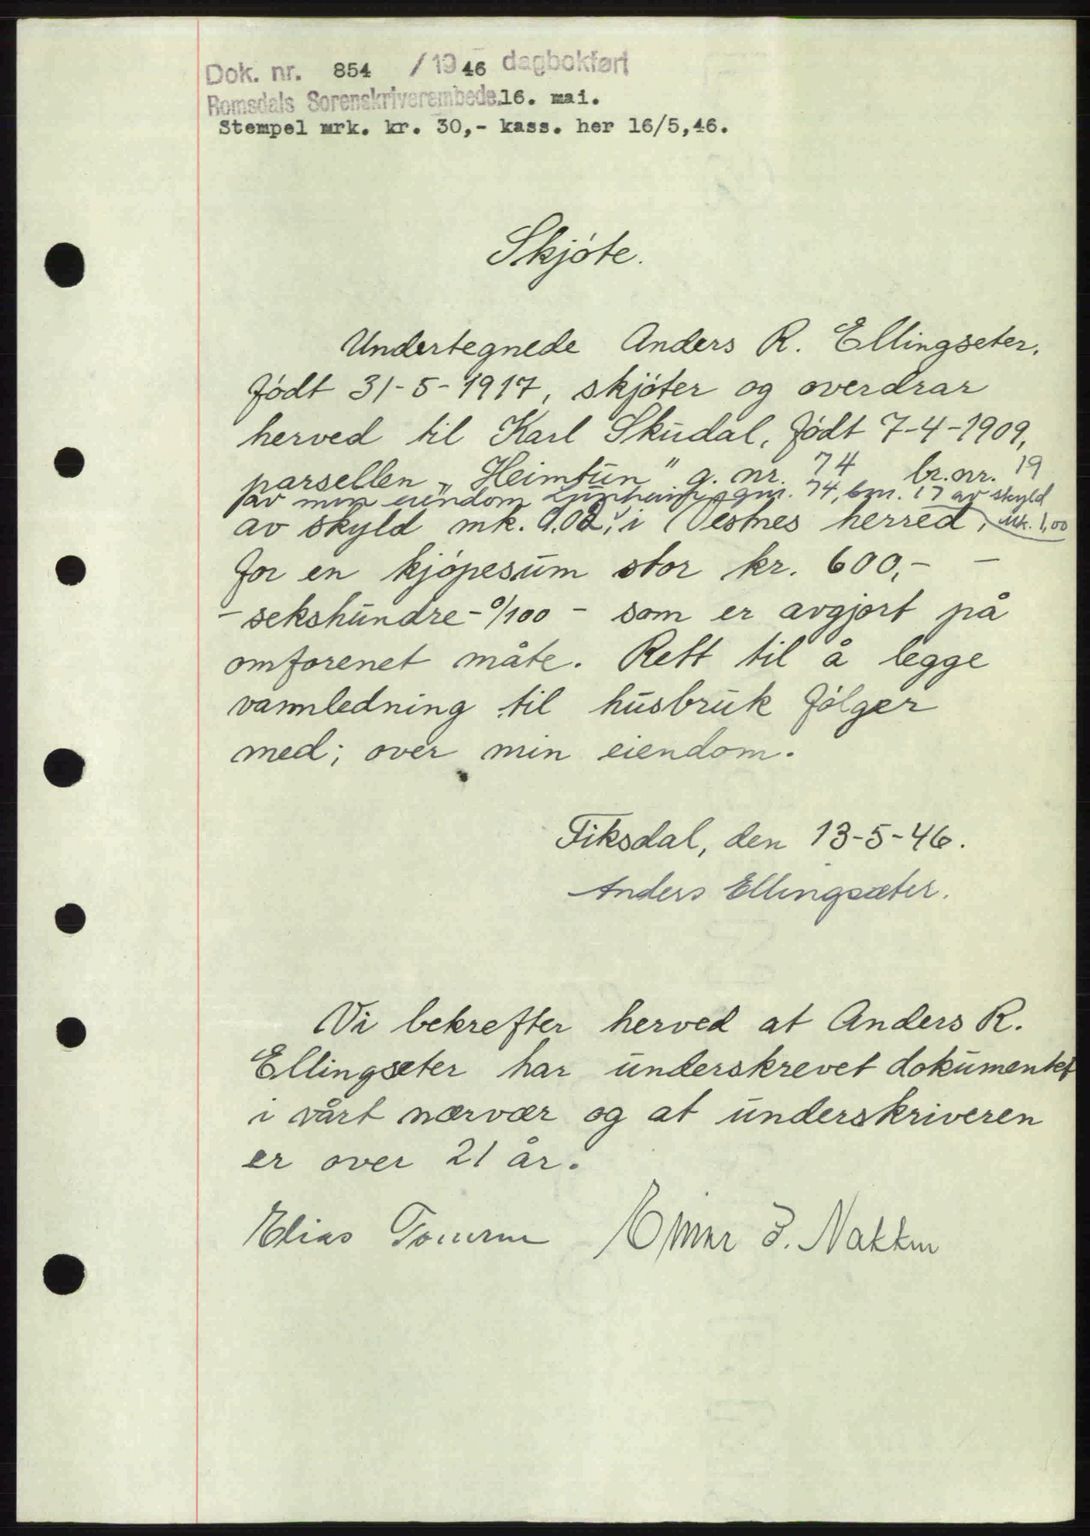 Dok. nr. 854 / 1946 dagbokført
Romsdals Sorenskriverembede 16. mai.
Stempel mrk. kr. 30,- kass. her 16/5,46.
Skjøte.
Undertegnede Anders R. Ellingseter,
født 31-5-1917, skjøter og overdrar
herved til Karl Skudal, født 7-4-1909,
parsellen „Heimtun" g. nr. 74 br. nr. 19
av min eiendom gnr. 74, bnr. 17 av skyld
mk. 1,00
av skyld mk. 0.02, i Vestnes herred,
for en kjøpesum stor kr. 600,- -
- sekshundre - 0/100 - som er avgjort på
omforenet måte. Rett til å legge
vannledning til husbruk følger
med; over min eiendom.
Fiksdal, den 13-5-46.
Anders Ellingsæter.
Vi bekrefter herved at Anders R.
Ellingseter har underskrevet dokumentet
i vårt nærvær og at underskriveren
er over 21 år.
Elias Einar J. Nakken